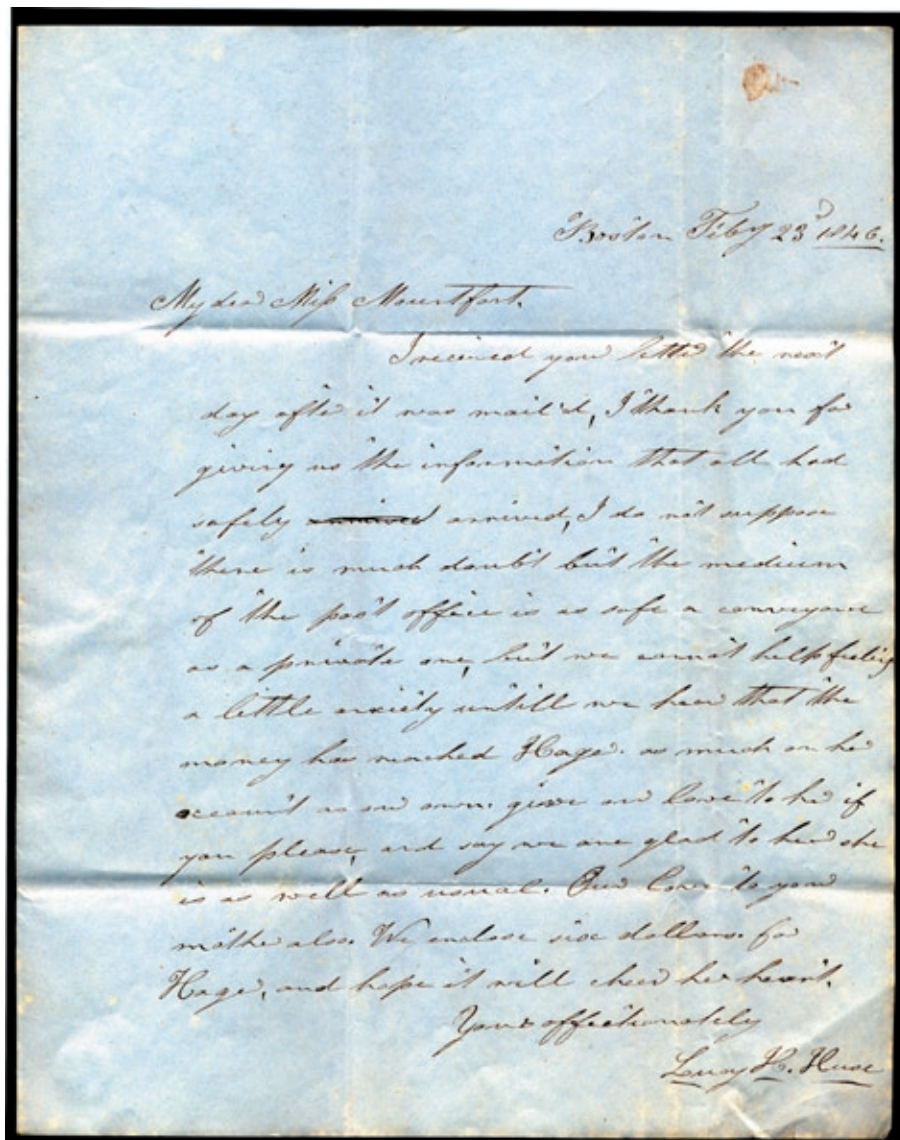 Boston Feby 23d 1846.
My dear Miss Mountfort.
I received your letter the next
day after it was mail'd, I thank you for
giving us the information that all had
safely arrived arrived, I do not suppose
there is much doubt but the medium
of the post office is as safe a conveyance
as a private one, but we cannot help feeling
a little anxiety untill we hear that the
money has reached Hagar. as much on her
account as our own. give our love to her if
you please, and say we are glad to hear she
is as well as usual. Our love to your
mother also. We enclose six dollars for
Hagar, and hope it will cheer her heart.
Yours affectionately
Lucy H. Huse